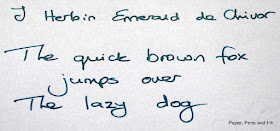 J Herbin Emerald de Chivor
The quick brown fox
jumps over
The lazy dog
Paper, Pens and Ink